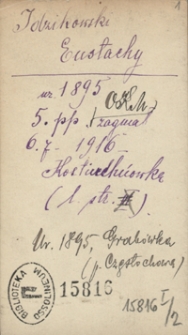 1
Idzikowski
Eustachy
ur. 1895
5. pp. zaginął
6. 7. 1916
Kostiuchnówka
(l. str. III)
Ur. 1895, Grabówka
(p. Częstochowa)
BIBLIOTEKA
OSSOLINEUM
15816
15816 I/2